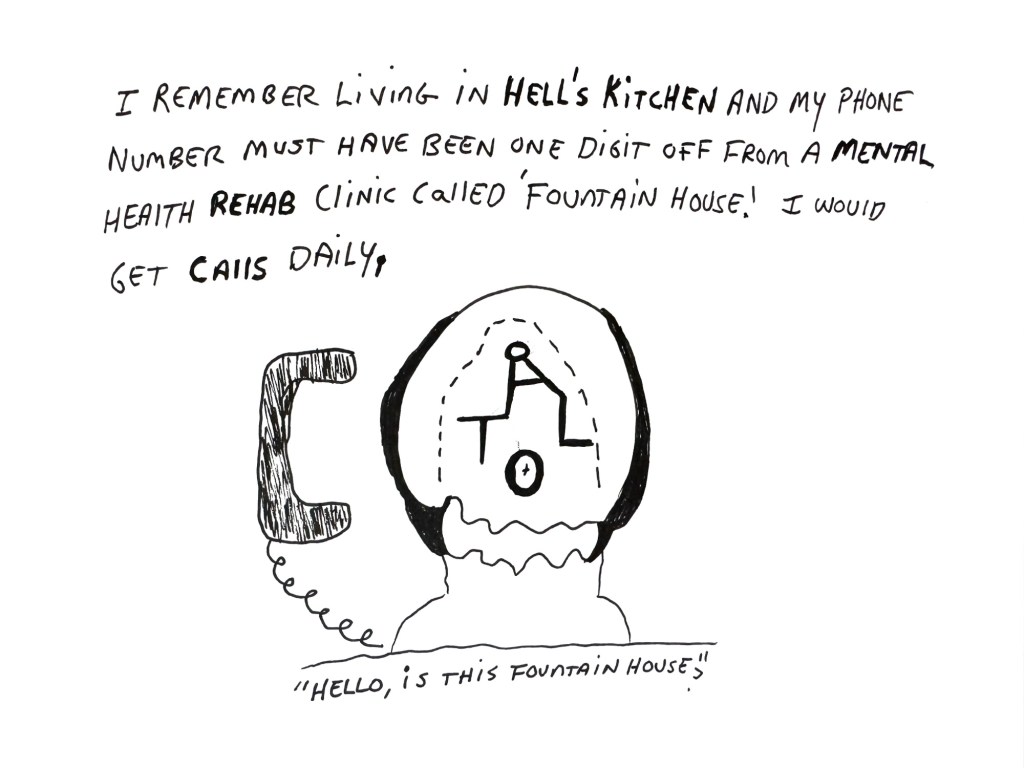 I REMEMBER LIVING IN HELL'S KITCHEN AND MY PHONE
NUMBER MUST HAVE BEEN ONE DIGIT OFF FROM A MENTAL
HEALTH REHAB CLINIC CALLED 'FOUNTAIN HOUSE.' I WOULD
GET CALLS DAILY,
"HELLO, IS THIS FOUNTAIN HOUSE?"